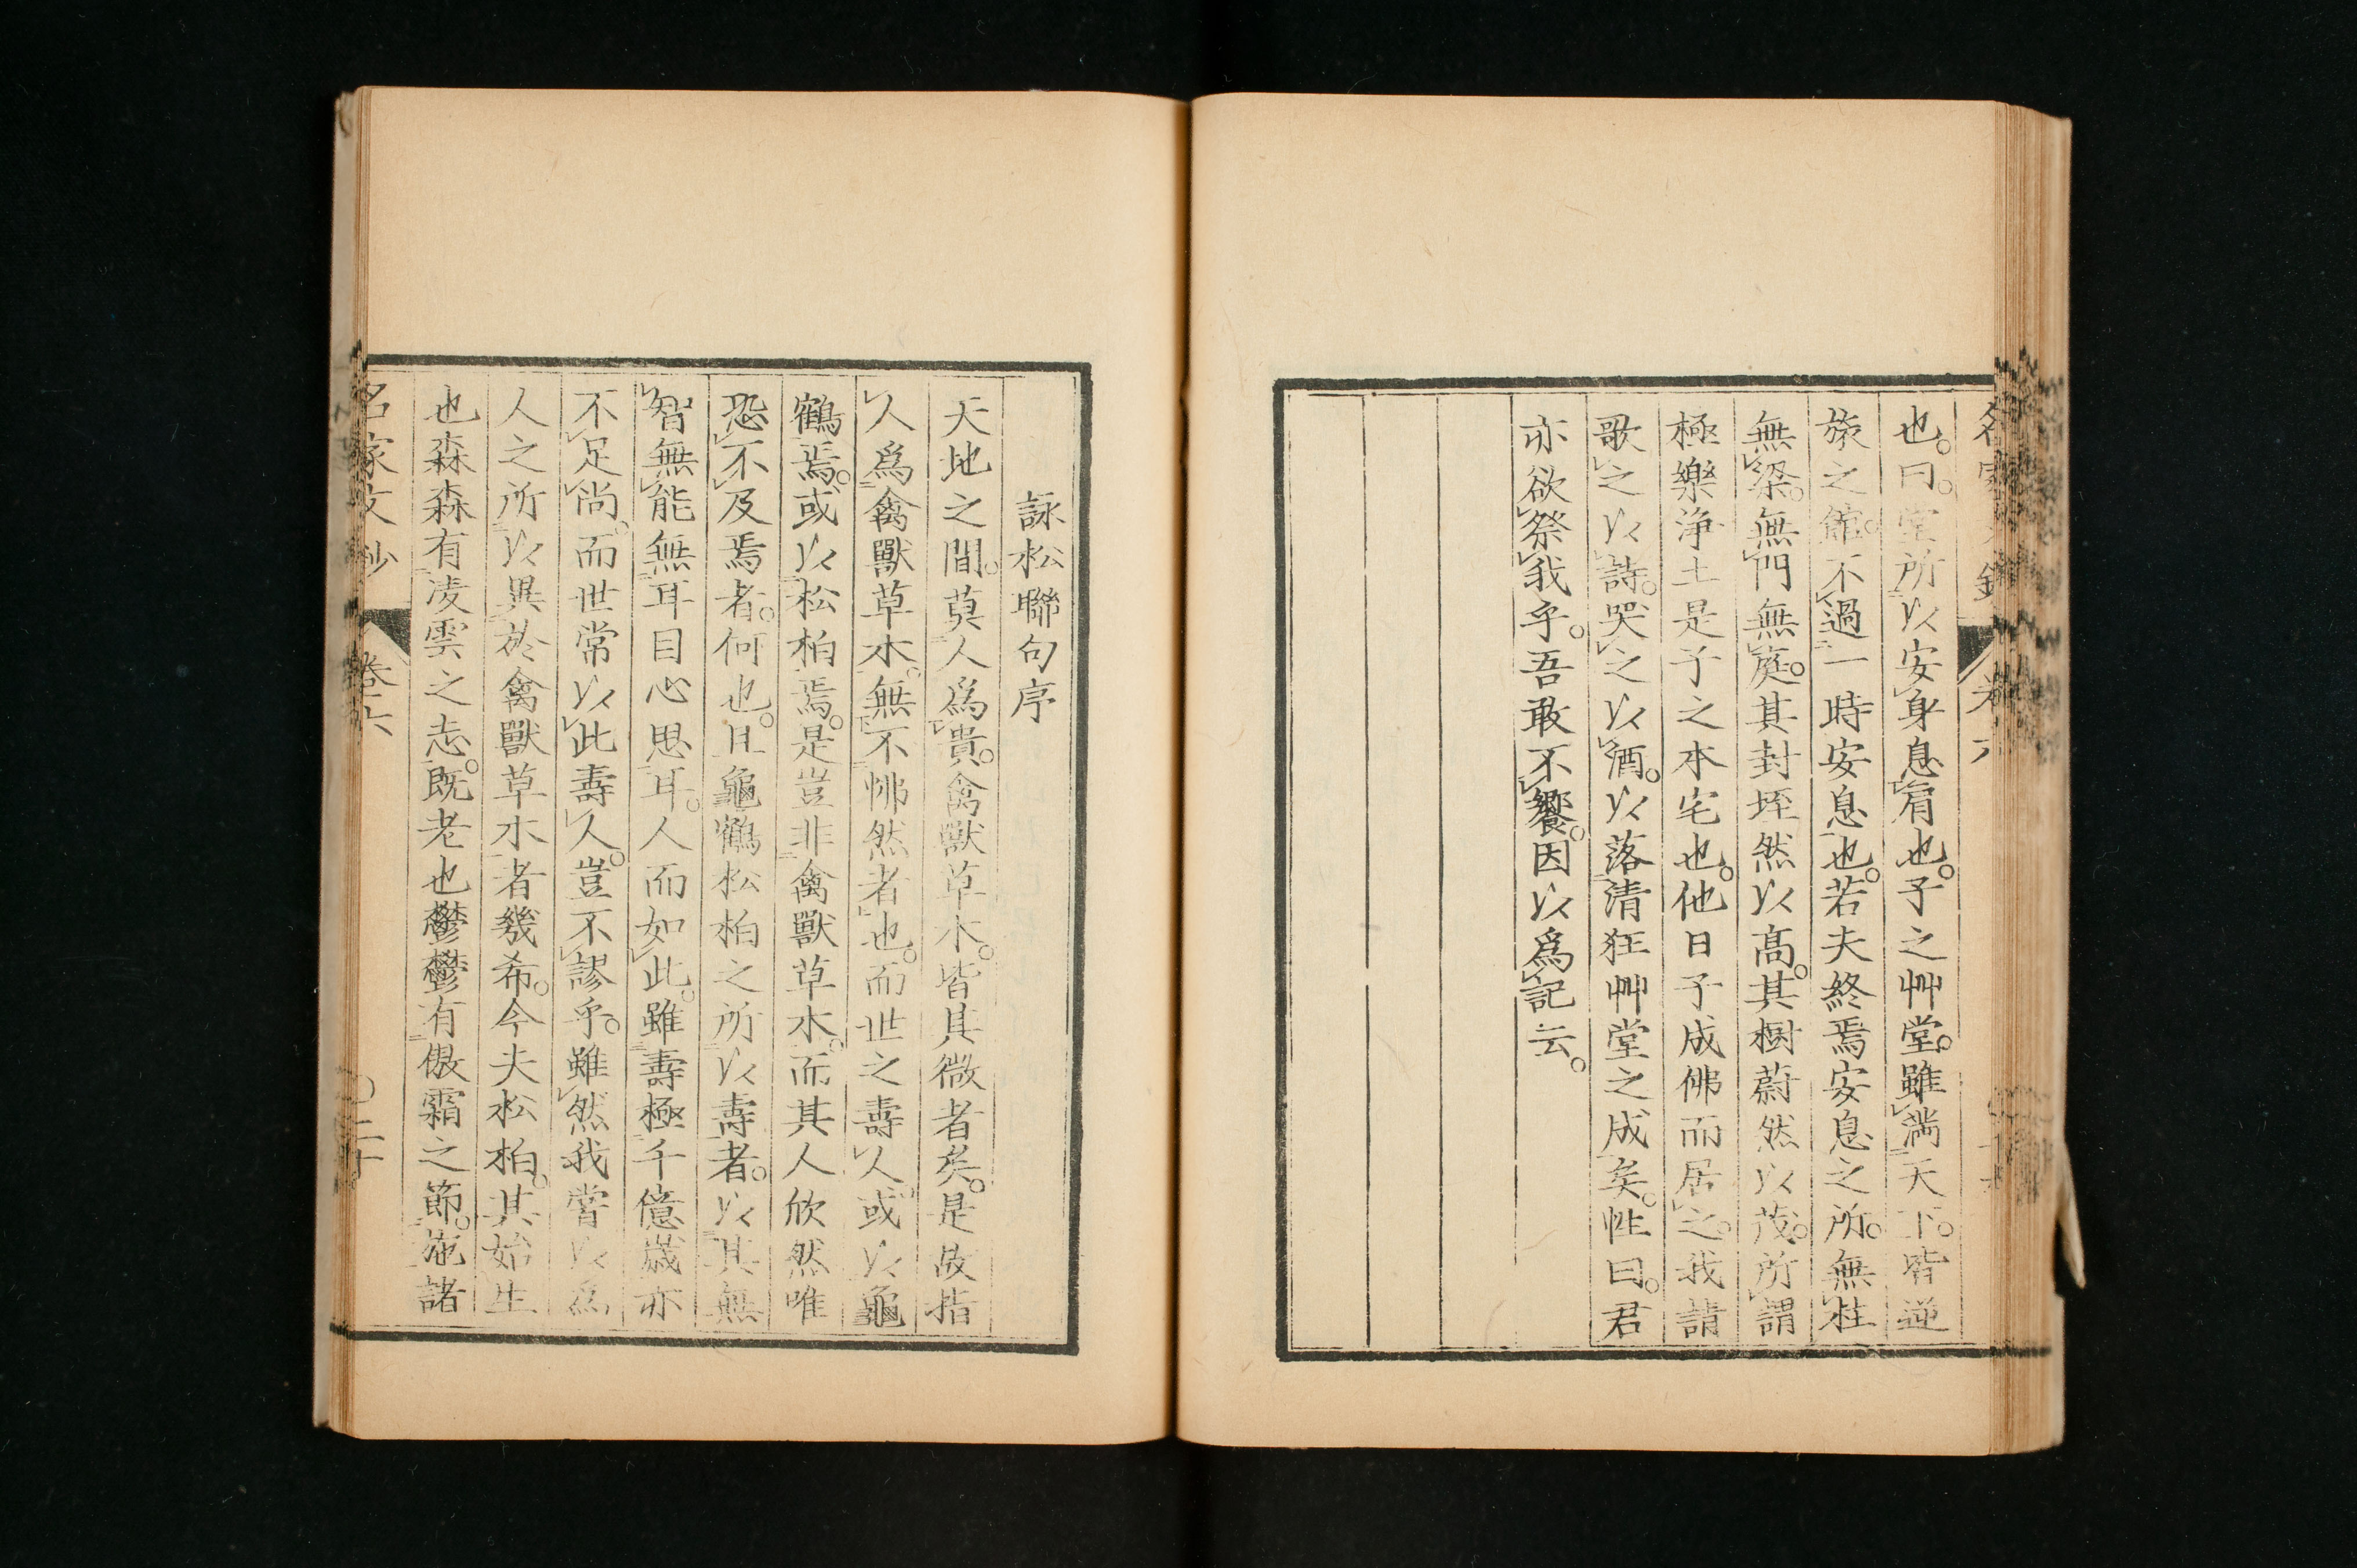 也。曰。堂所以安身息肩也。子之艸堂。雖滿天下。皆逆
旅之館。不過一時安息也。若夫終焉安息之所。無柱
無梁。無門無庭。其封垤然以高。其樹蔚然以茂。所謂
極樂淨土是子之本宅也。他日子成佛而居之。我請
歌之以詩。哭之以酒。以落清狂艸堂之成矣。性曰。君
亦欲祭我乎。吾敢不饗。因以爲記云。
詠松聯句序
天地之間。莫人爲貴。禽獸草木。皆其微者矣。是故指
人爲禽獸草木。無不怫然者也。而世之壽人。或以龜
鶴焉。或以松柏焉。是豈非禽獸草木。而其人欣然唯
恐不及焉者。何也。且龜鶴松柏之所以壽者。以其無
智無能無耳目心思耳。人而如此。雖壽極千億歲亦
不足尚。而世常以此壽人。豈不謬乎。雖然我嘗以爲
人之所以異於禽獸草木者幾希。今夫松柏。其始生
也森森有凌雲之志。既老也鬱鬱有傲霜之節。施諸
名家文鈔 卷六 〇二十